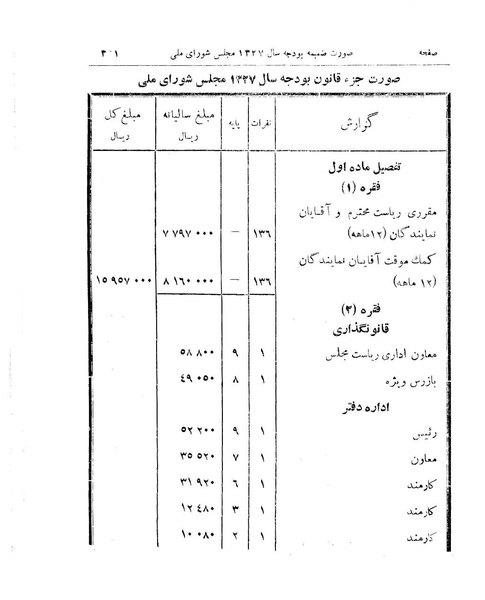 صفحه صورت ضمیمه بودجه سال ۱۳۲۷ مجلس شورای ملی
صورت جزء قانون بودجه سال ۱۳۲۷ مجلس شورای ملی
گزارش نفرات پایه مبلغ سالیانه ریال مبلغ کل ریال
تفصیل ماده اول
فقره (۱)
مقرری ریاست محترم و آقایان
نمایندگان (۱۲ماهه) ۱۳۶ — ۷ ۷۹۷ ۰۰۰
کمك موقت آقایان نمایندگان
(۱۲ ماهه) ۱۳۶ — ۸ ۱۶۰ ۰۰۰ ۱۵ ۹۵۷ ۰۰۰
فقره (۲)
قانونگذاری
معاون اداری ریاست مجلس ۱ ۹ ۵۸ ۸۰۰
بازرس ویژه ۱ ۸ ۴۹ ۰۵۰
اداره دفتر
رئیس ۱ ۹ ۵۲ ۲۰۰
معاون ۱ ۷ ۳۵ ۵۲۰
کارمند ۱ ۶ ۳۱ ۹۲۰
کارمند ۱ ۳ ۱۲ ۴۸۰
کارمند ۱ ۲ ۱۰ ۰۸۰